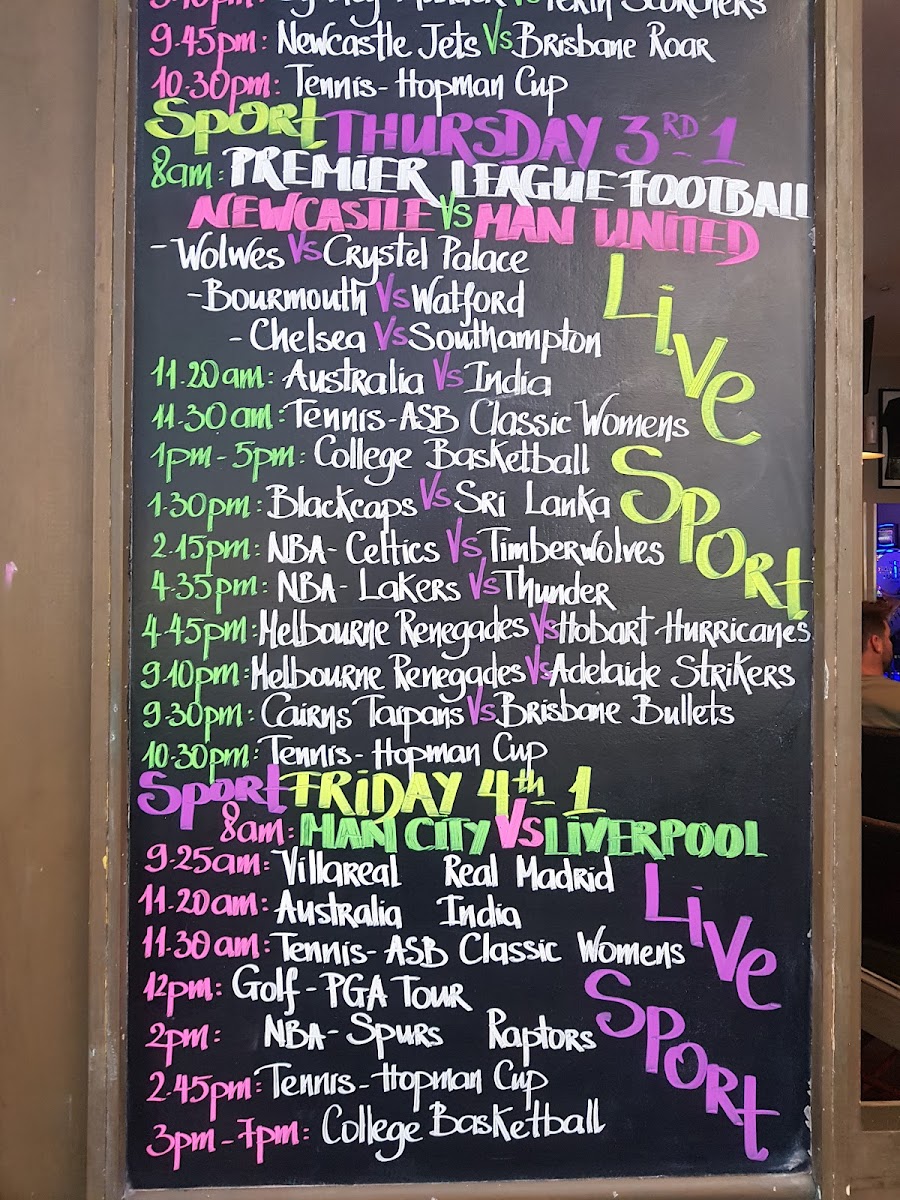 9.45pm: Newcastle Jets Vs Brisbane Roar
10.30pm: Tennis- Hopman Cup
Sport THURSDAY 3RD-1
8am: PREMIER LEAGUE FOOTBALL
NEWCASTLE Vs MAN UNITED
- Wolwes Vs Crystel Palace
- Bourmouth Vs Watford
- Chelsea Vs Southampton
Live Sport
11.20am: Australia Vs India
11.30am: Tennis-ASB Classic Womens
1pm-5pm: College Basketball
1.30pm: Blackcaps Vs Sri Lanka
2.15pm: NBA- Celtics Vs Timberwolves
4.35pm: NBA- Lakers Vs Thunder
4.45pm: Melbourne Renegades Vs Hobart Hurricanes
9.10pm: Melbourne Renegades Vs Adelaide Strikers
9.30pm: Cairns Taipans Vs Brisbane Bullets
10.30pm: Tennis- Hopman Cup
Sport FRIDAY 4th-1
8am: MAN CITY VS LIVERPOOL
9.25am: Villareal Real Madrid
11.20am: Australia India
11.30am: Tennis- ASB Classic Womens
12pm: Golf- PGA Tour
2pm: NBA- Spurs Raptors
2.45pm: Tennis- Hopman Cup
3pm-7pm: College Basketball
Live Sport